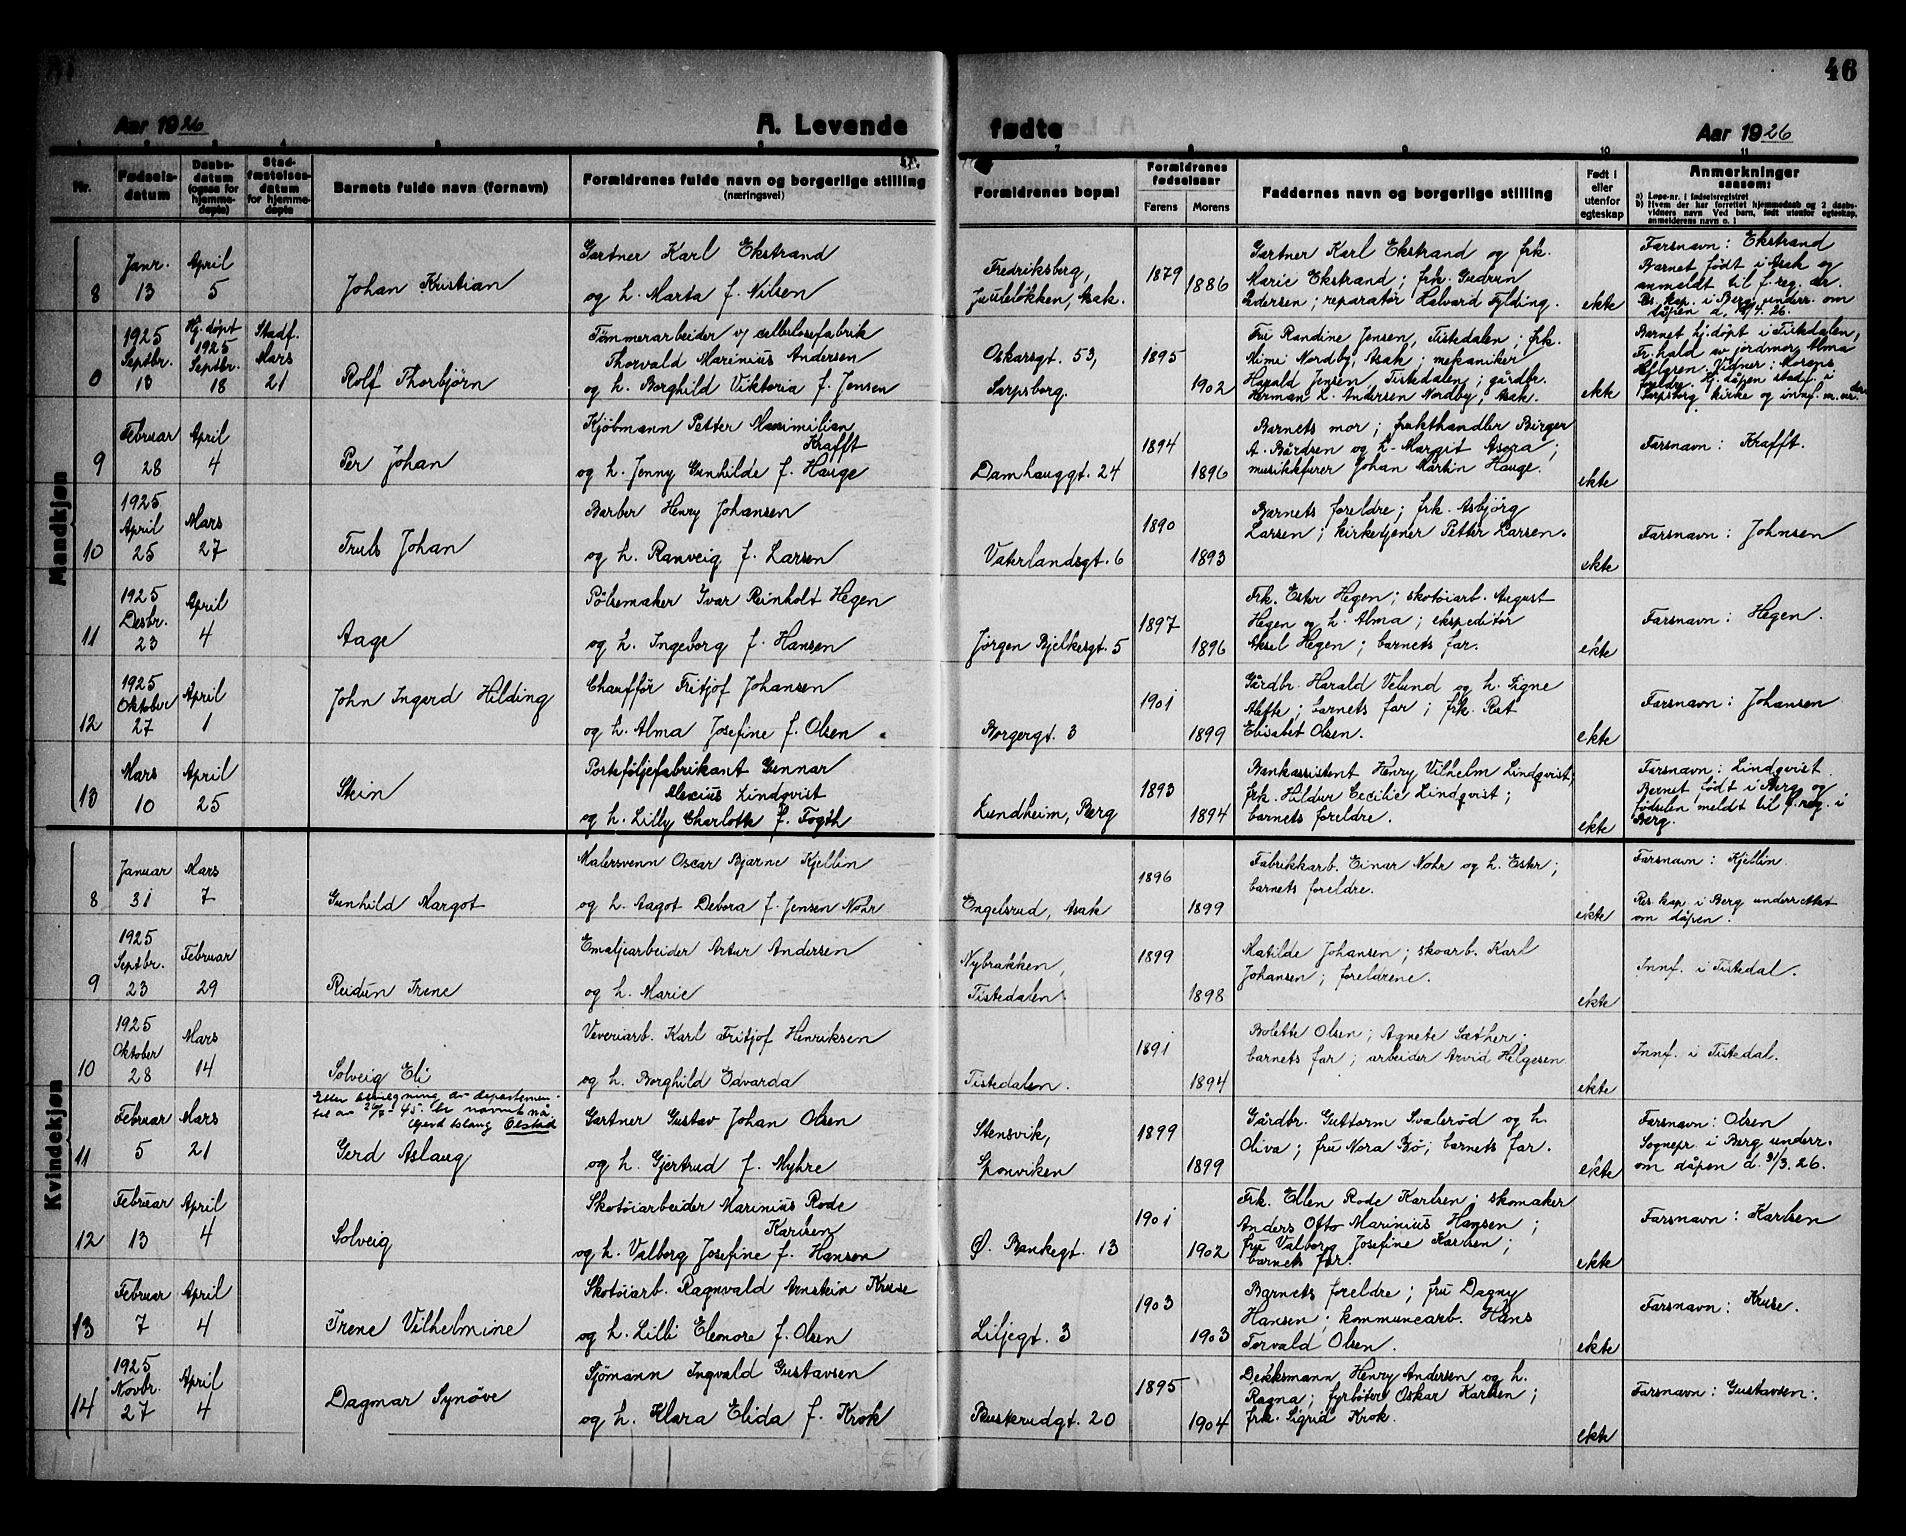 46
Aar 1926
A. Levende
fødte
Aar 1926
Nr.
Fødsels-
datum
Daabs-
datum
(ogsaa for
hjemme-
døpte)
Stad-
fæstelses-
datum
for hjemme-
døpte
Barnets fulde navn (fornavn)
Forældrenes fulde navn og borgerlige stilling
(næringsvei)
Forældrenes bopæl
Forældrenes
fødselsaar
Farens
Morens
Faddernes navn og borgerlige stilling
Født i
eller
utenfor
egteskap
Anmerkninger
saasom:
a) Løpe-nr. i fødselsregistret
b) Hvem der har forrettet hjemmedaab og 2 daabs-
vidners navn Ved barn, født utenfor egteskap,
anmelderens navn o. l
Mandkjøn
8
Janr.
13
April
5
Johan Kristian
Gartner Karl Ekstrand
og h. Marta f. Nilsen
Fredriksberg,
Juuleløkken, Asak.
1879
1886
Gartner Karl Ekstrand og frk.
Marie Ekstrand; frk. Gudrun
Pedersen; reparatør Halvard Fylding.
ekte
Farsnavn: Ekstrand
Barnet født i Asak og
anmeldt til f. reg. der.
Res. kap. i Berg underr. om
dåpen d. 12/4. 26.
0
1925
Septbr.
18
Hj. døpt
1925
Septbr.
18
Stadf.
Mars
21
Rolf Thorbjörn
Tömmerarbeider v/ cellulosefabrik
Thorvald Marinius Andersen
og h. Borghild Viktoria f. Jensen
Oskarsgt. 53,
Sarpsborg.
1895
1902
Fru Randine Jensen, Tistedalen; frk.
Mimi Nordby, Asak; mekaniker
Harald Jensen, Tistedalen; gårdbr.
Herman L. Andersen Nordby, Asak.
ekte
Barnet hj. döpt i Tistedalen,
Fr.hald av jordmor Alma
Helgesen. Vidner: Morens
foreldre. Hj. dåpen stadf. i
Sarpsborg kirke og innf. m. nr. der
9
Februar
28
April
4
Per Johan
Kjöbmann Petter Maximilian
Krafft
og h. Jenny Gunhilde f. Hauge
Damhauggt. 24
1894
1896
Barnets mor; frukthandler Birger
A. Bårdsen og h. Margit Asora;
musikkfurer Johan Martin Hauge.
ekte
Farsnavn: Krafft.
10
1925
April
25
Mars
27
Truls Johan
Barber Henry Johansen
og h. Ranveig f. Larsen
Vaterlandsgt. 6
1890
1893
Barnets foreldre; frk. Asbjörg
Larsen; kirketjener Petter Larsen.
ekte
Farsnavn: Johnsen
11
1925
Desbr.
23
April
4
Aage
Pölsemaker Ivar Reinholt Hegen
og h. Ingeborg f. Hansen
Jörgen Bjelkesgt. 5
1897
1896
Frk. Ester Hegen; skotöiarb. August
Hegen og h. Alma; ekspeditör
Aksel Hegen; barnets far.
ekte
Farsnavn: Hegen.
12
1925
Oktober
27
April
1
John Ingard Hilding
Chaufför Fritjof Johansen
og h. Alma Josefine f. Olsen
Borgergt. 3
1901
1899
Gårdbr. Harald Velund og h. Signe
Alette; barnets far; frk. Rut
Elisabet Olsen.
ekte
Farsnavn: Johansen
13
Mars
10
April
25
Stein
Porteföljefabrikant Gunnar
Alexius Lindqvist
og h. Lilly Charlotte f. Fogth
Lundheim, Berg
1893
1894
Bankassistent Henry Vilhelm Lindqvist;
frk. Hildur Cecilie Lindqvist;
barnets foreldre.
ekte
Farsnavn: Lindqvist.
Barnet født i Berg og
födselen meldt til f. reg. i
Berg.
Kvindekjøn
8
Januar
31
Mars
7
Gunhild Margot
Malersvenn Oscar Bjarne Kjellin
og h. Aagot Debora f. Jensen Nohr
Engelsrud, Asak
1896
1899
Fabrikkarb. Einar Nohr og h. Ester;
barnets foreldre.
ekte
Farsnavn: Kjellin.
Res. kap. i Berg underrettet
om dåpen.
9
1925
Septbr.
23
Februar
29
Reidun Irene
Emaljearbeider Artur Andersen
og h. Marie
Nybrakken,
Tistedalen.
1899
1898
Matilde Johansen; skoarb. Karl
Johansen; foreldrene.
ekte
Innf. i Tistedal.
10
1925
Oktober
28
Mars
14
Solveig Eli
Veveriarb. Karl Fritjof Henriksen
og h. Borghild Edvarda
Tistedalen.
1891
1894
Bolette Olsen; Agnete Sæther;
barnets far; arbeider Arvid Helgesen.
ekte
Innf. i Tistedal.
11
Februar
5
Mars
21
Etter bevilgning av departemen-
tet av 26/7-45. er navnet nå
Gerd Aslaug Olstad
Gerd Aslaug
Gartner Gustav Johan Olsen
og h. Gjertrud f. Myhre
Stensvik,
Sponviken
1899
1899
Gårdbr. Guttorm Svalerød og h.
Oliva; fru Nora Bö; barnets far.
ekte
Farsnavn: Olsen
Sognepr. i Berg underr.
om dåpen d. 31/3. 26.
12
Februar
13
April
4
Solveig
Skotöiarbeider Marinius Rode
Karlsen
og h. Valborg Josefine f. Hansen
Ø. Bankegt. 13
1901
1902
Frk. Ellen Rode Karlsen; skomaker
Anders Otto Marinius Hansen;
fru Valborg Josefine Karlsen;
barnets far.
ekte
Farsnavn: Karlsen
13
Februar
7
April
4
Irene Vilhelmine
Skotöiarb. Ragnvald Arnstein Kruse
og h. Lilli Eleonore f. Olsen
Liljegt. 3
1903
1903
Barnets foreldre; fru Dagny
Hansen; kommunearb. Hans
Torvald Olsen.
ekte
Farsnavn: Kruse.
14
1925
Novbr.
27
April
4
Dagmar Synöve
Sjömann Ingvald Gustavsen
og h. Klara Elida f. Krok
Buskrudgt. 20
1895
1904
Dekksmann Henry Andersen og h.
Ragna; fyrböter Oskar Karlsen;
frk. Sigrid Krok.
ekte
Farsnavn: Gustavsen.